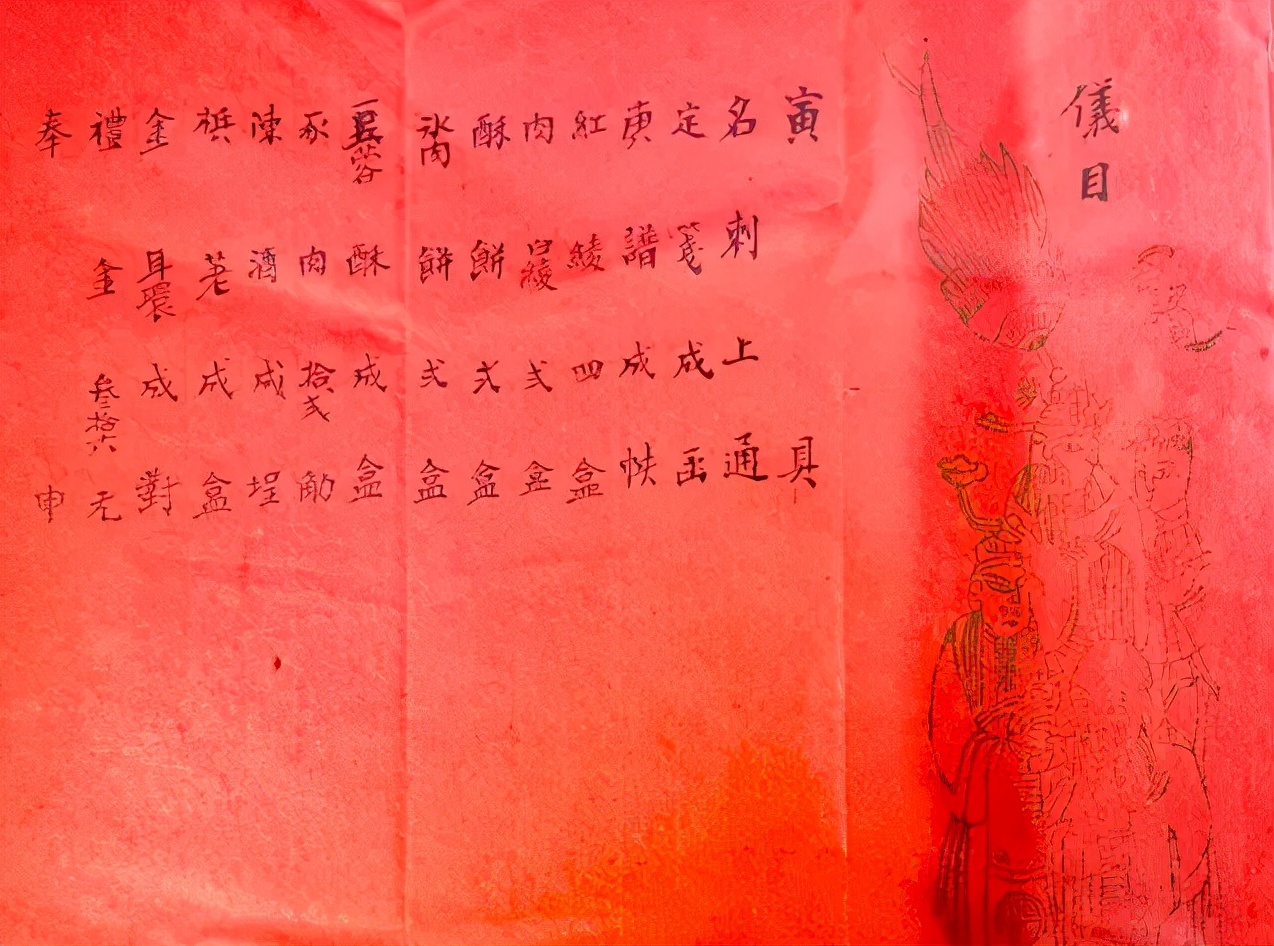 儀目
寅具
名刺上通
定箋成函
庚譜成帙
紅綾四盒
肉白綾弍盒
酥餅弍盒
氷肉餅弍盒
豆蓉酥成盒
豕肉拾弍觔
陳酒成埕
梹荖成盒
金耳環成對
禮金叁拾六元
奉申